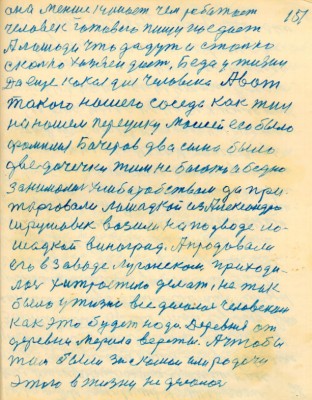 она меньше кушает чем работает 151
человек готового пищу поедает
А лошади что дадут и столько
сколко хозяен дает, Беда у жизни
Да еще какая для человека А вот
такого нашего соседа как жил
на нашем переулку Моисей его было
фамилия Бачеров два сина было
две дочечки жили не богато а бедно
занимались хлиборобством да при
торговали лошадкой из Александро
возили на подводе ло-
шадкой виноград. А продовали
его в Заводе Луганском, приходи-
лось хитрость делат, не так
было у жизни все делалося человеком
как это будет надо Деревня от
деревни верста. А чтобы
там были знакомоя или родичи
этого в жизни не делалося